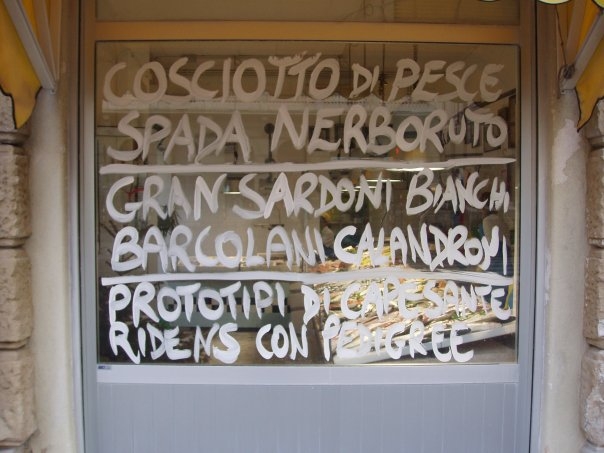 COSCIOTTO DI PESCE
SPADA NERBORUTO
GRAN SARDONI BIANCHI
BARCOLANI CALANDRONI
PROTOTIPI DI CAPESANTE
RIDENS CON PEDIGREE